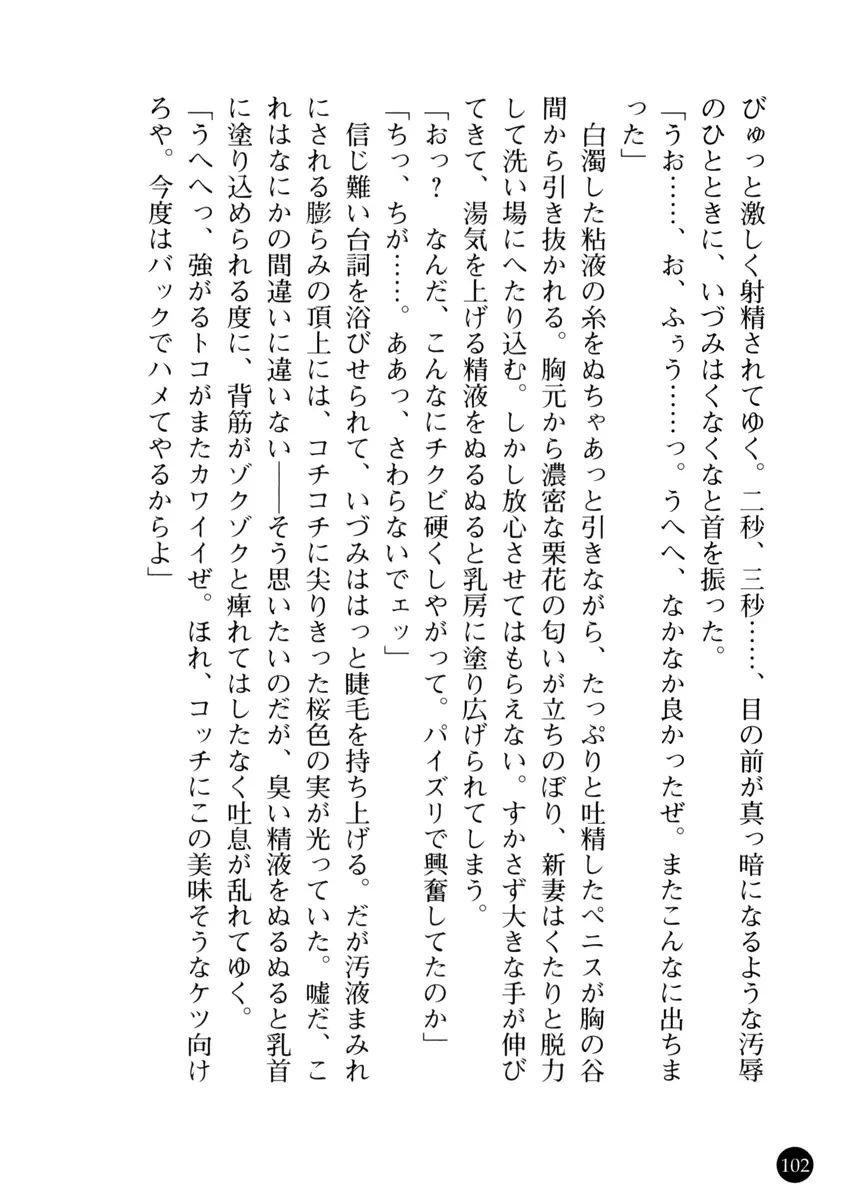 びゅっと激しく射精されてゆく。二秒、三秒……、目の前が真っ暗になるような汚辱
のひとときに、いづみはくなくなと首を振った。
「うお……、お、ふぅう……っ。うへへ、なかなか良かったぜ。またこんなに出ちま
った」
白濁した粘液の糸をぬちゃあっと引きながら、たっぷりと吐精したペニスが胸の谷
間から引き抜かれる。胸元から濃密な栗花の匂いが立ちのぼり、新妻はくたりと脱力
して洗い場にへたり込む。しかし放心させてはもらえない。すかさず大きな手が伸び
てきて、湯気を上げる精液をぬるぬると乳房に塗り広げられてしまう。
「おっ？　なんだ、こんなにチクビ硬くしやがって。パイズリで興奮してたのか」
「ちっ、ちが……。ああっ、さわらないでェッ」
信じ難い台詞を浴びせられて、いづみははっと睫毛を持ち上げる。だが汚液まみれ
にされる膨らみの頂上には、コチコチに尖りきった桜色の実が光っていた。嘘だ、こ
れはなにかの間違いに違いない――そう思いたいのだが、臭い精液をぬるぬると乳首
に塗り込められる度に、背筋がゾクゾクと痺れてはしたなく吐息が乱れてゆく。
「うへへっ、強がるトコがまたカワイイぜ。ほれ、コッチにこの美味そうなケツ向け
ろや。今度はバックでハメてやるからよ」
102